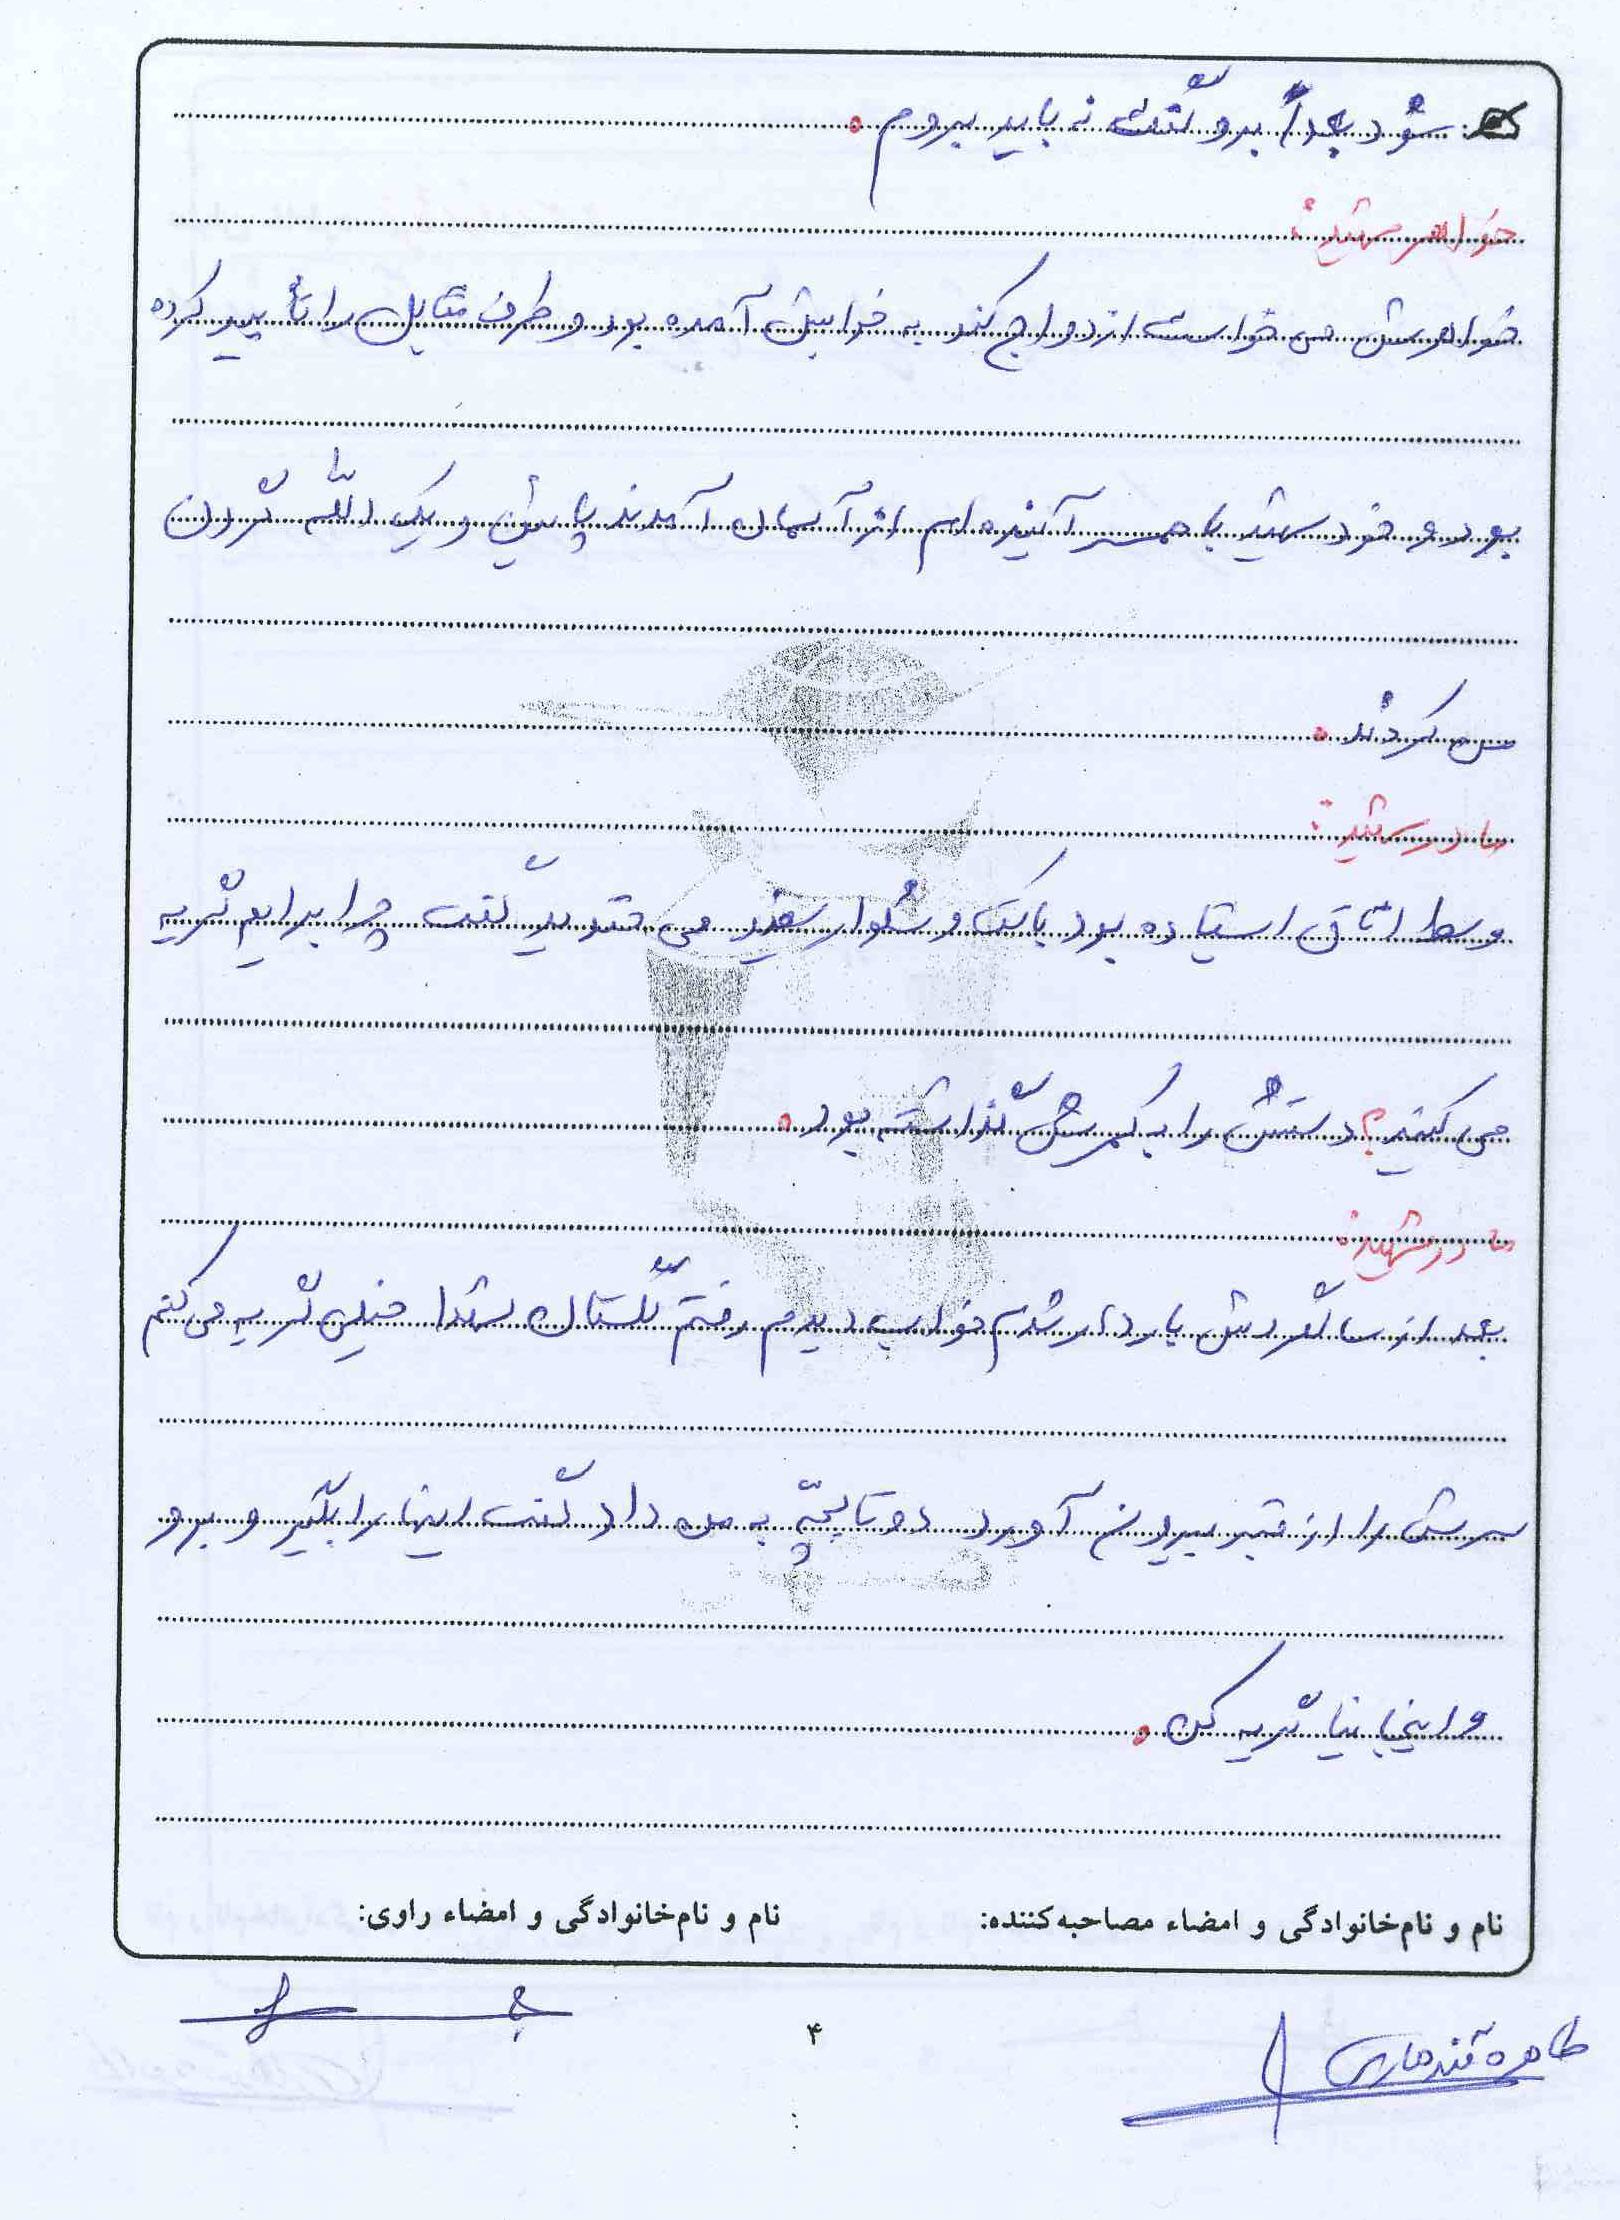 شود بعداً برو گفت نه باید بروم.
خواهر شهید:
خواهرش می خواست ازدواج کند به خوابش آمده بود و طرف مقابل را تأیید کرده
بود و خود شهید با همسر آینده ام از آسمان آمدند پایین و یک الله گردن
من کردند.
مادر شهید:
وسط اتاق استاده بود با کت و شلوار سفید می خندید گفت چرا برایم گریه
می کنید؟ دستش را به کمرش گذاشته بود.
مادر شهید:
بعد از سالگردش باردار شدم خواب دیدم رفتم گلستان شهدا خیلی گریه می کنم
سرش را از قبر بیرون آورد دو تا بچّه به من داد گفت اینها را بگیر و برو
و اینجا نیا گریه کن.
نام و نام‌خانوادگی و امضاء مصاحبه‌کننده: نام و نام‌خانوادگی و امضاء راوی:
طاهره قندهاری
۴